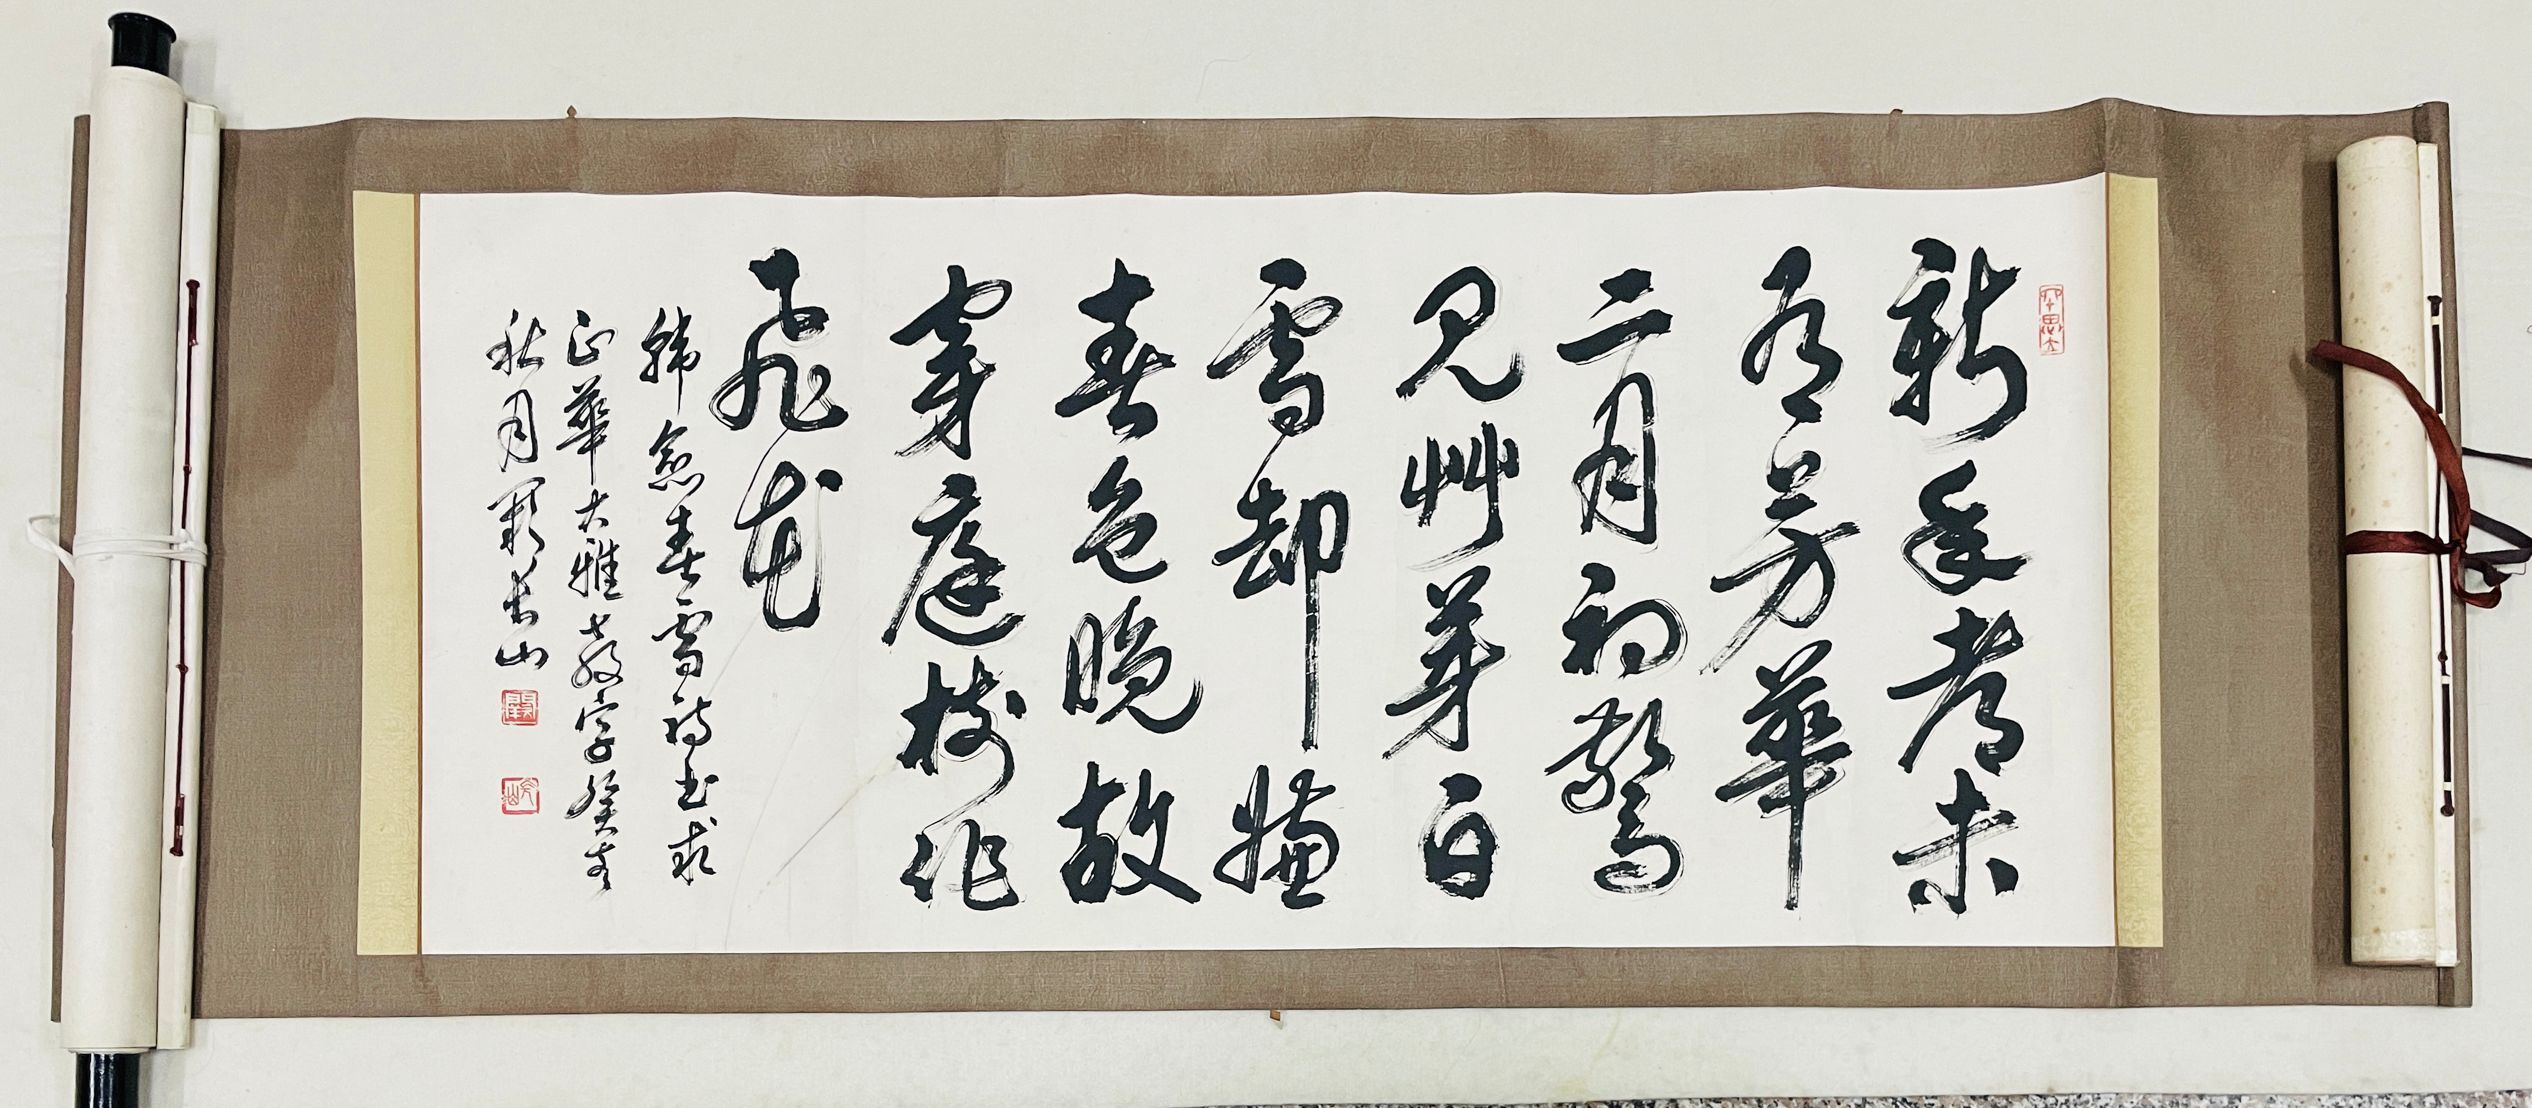 新年都未
有芳華
二月初驚
見艸芽白
雪卻嫌
春色晚故
穿庭樹作
飛花
韓愈春雪詩書求
正華大雅教字癸
秋月山